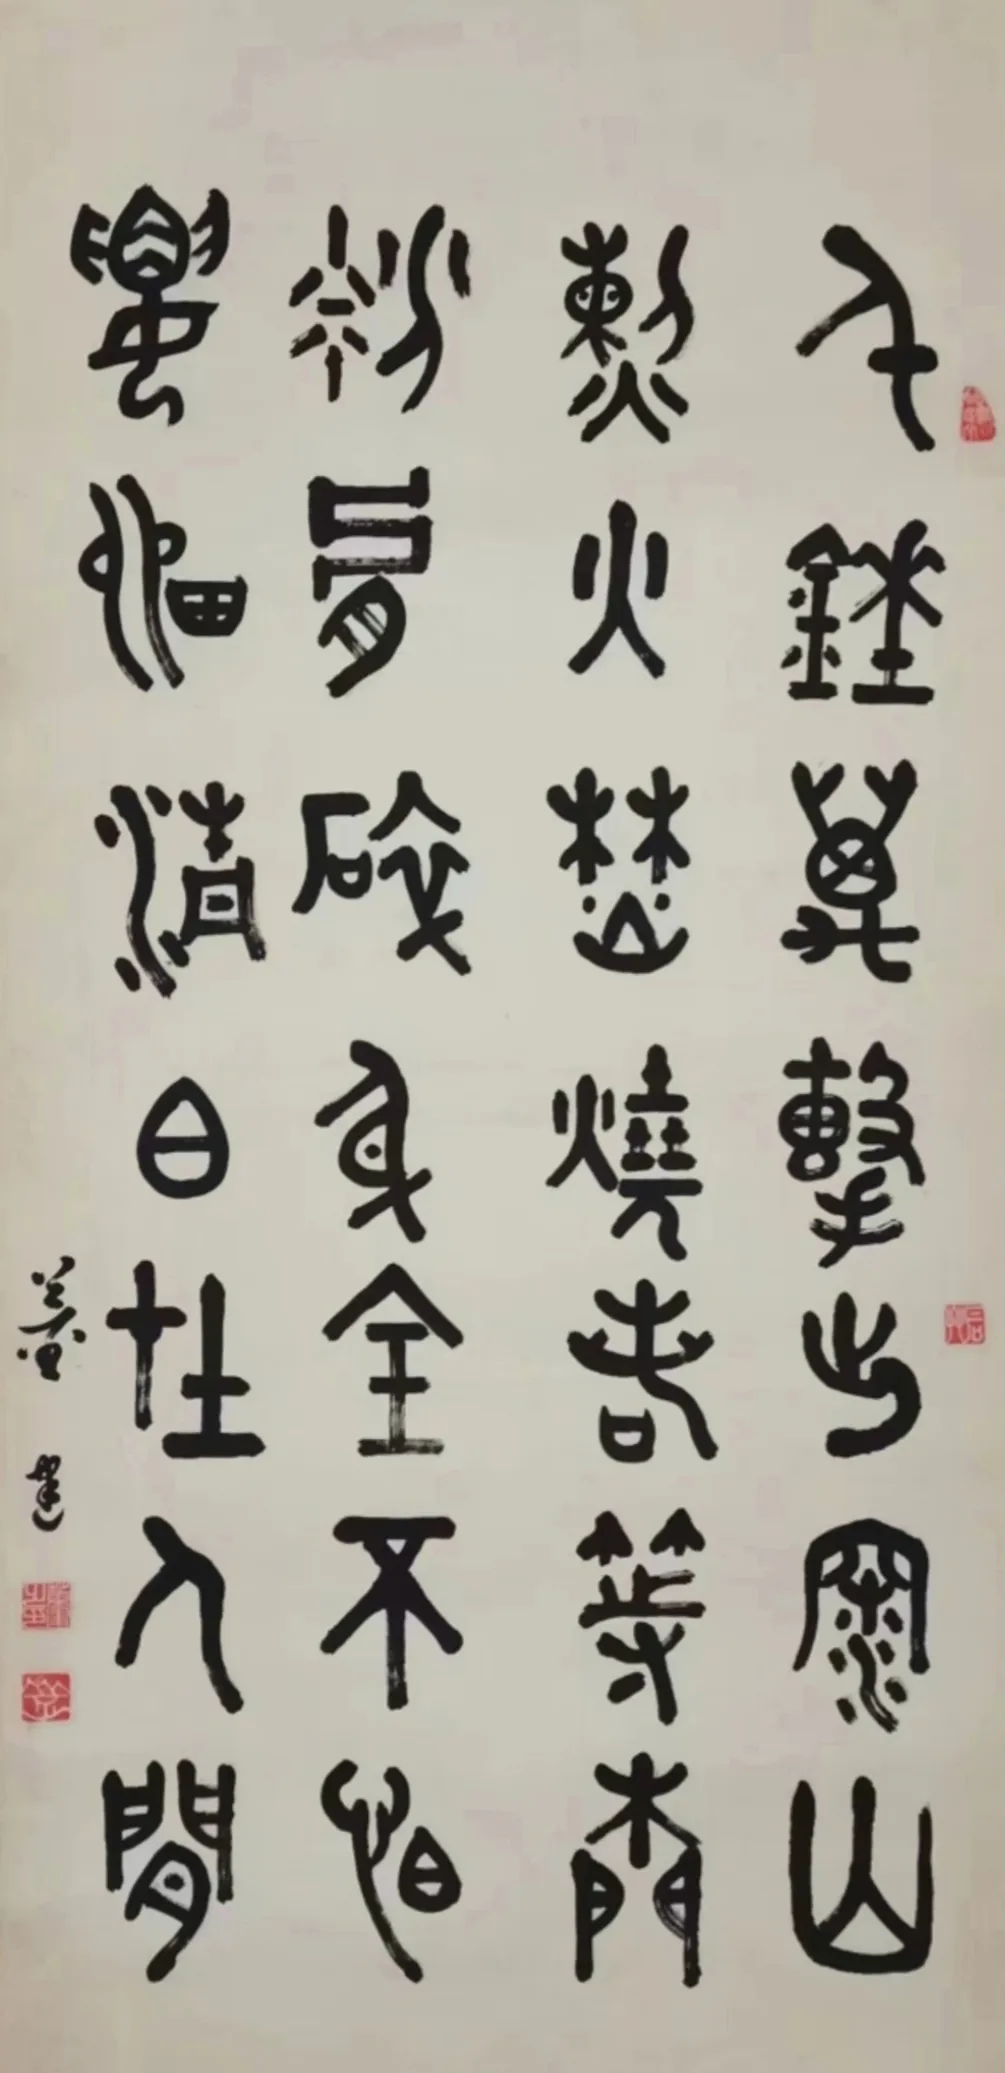 千錘萬擊出深山
烈火焚燒若等閑
粉骨碎身全不怕
要留清白在人間